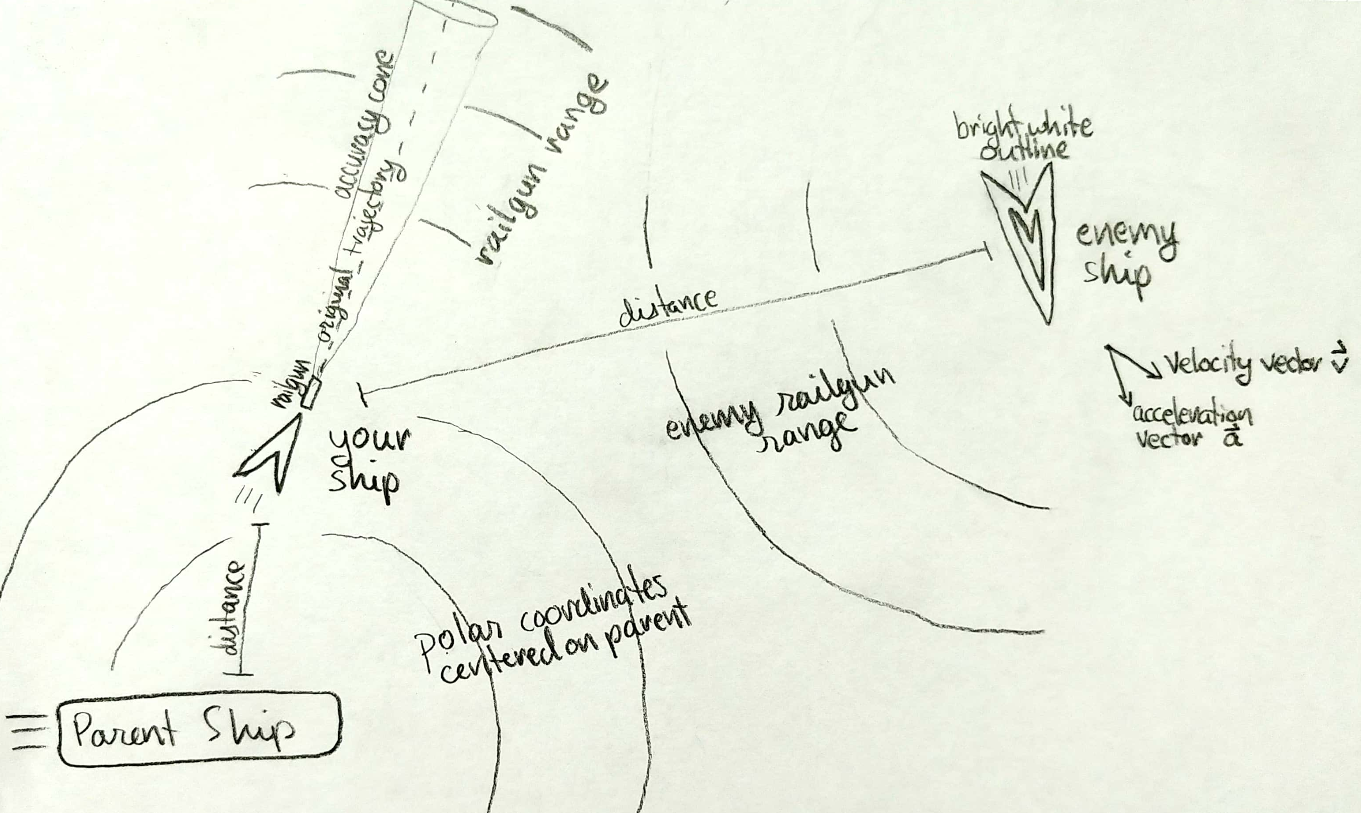 accuracy cone
original trajectory
railgun range
railgun
bright white
outline
enemy
ship
distance
velocity vector v⃗
acceleration
vector a⃗
enemy railgun
range
your
ship
distance
polar coordinates
centered on parent
Parent Ship